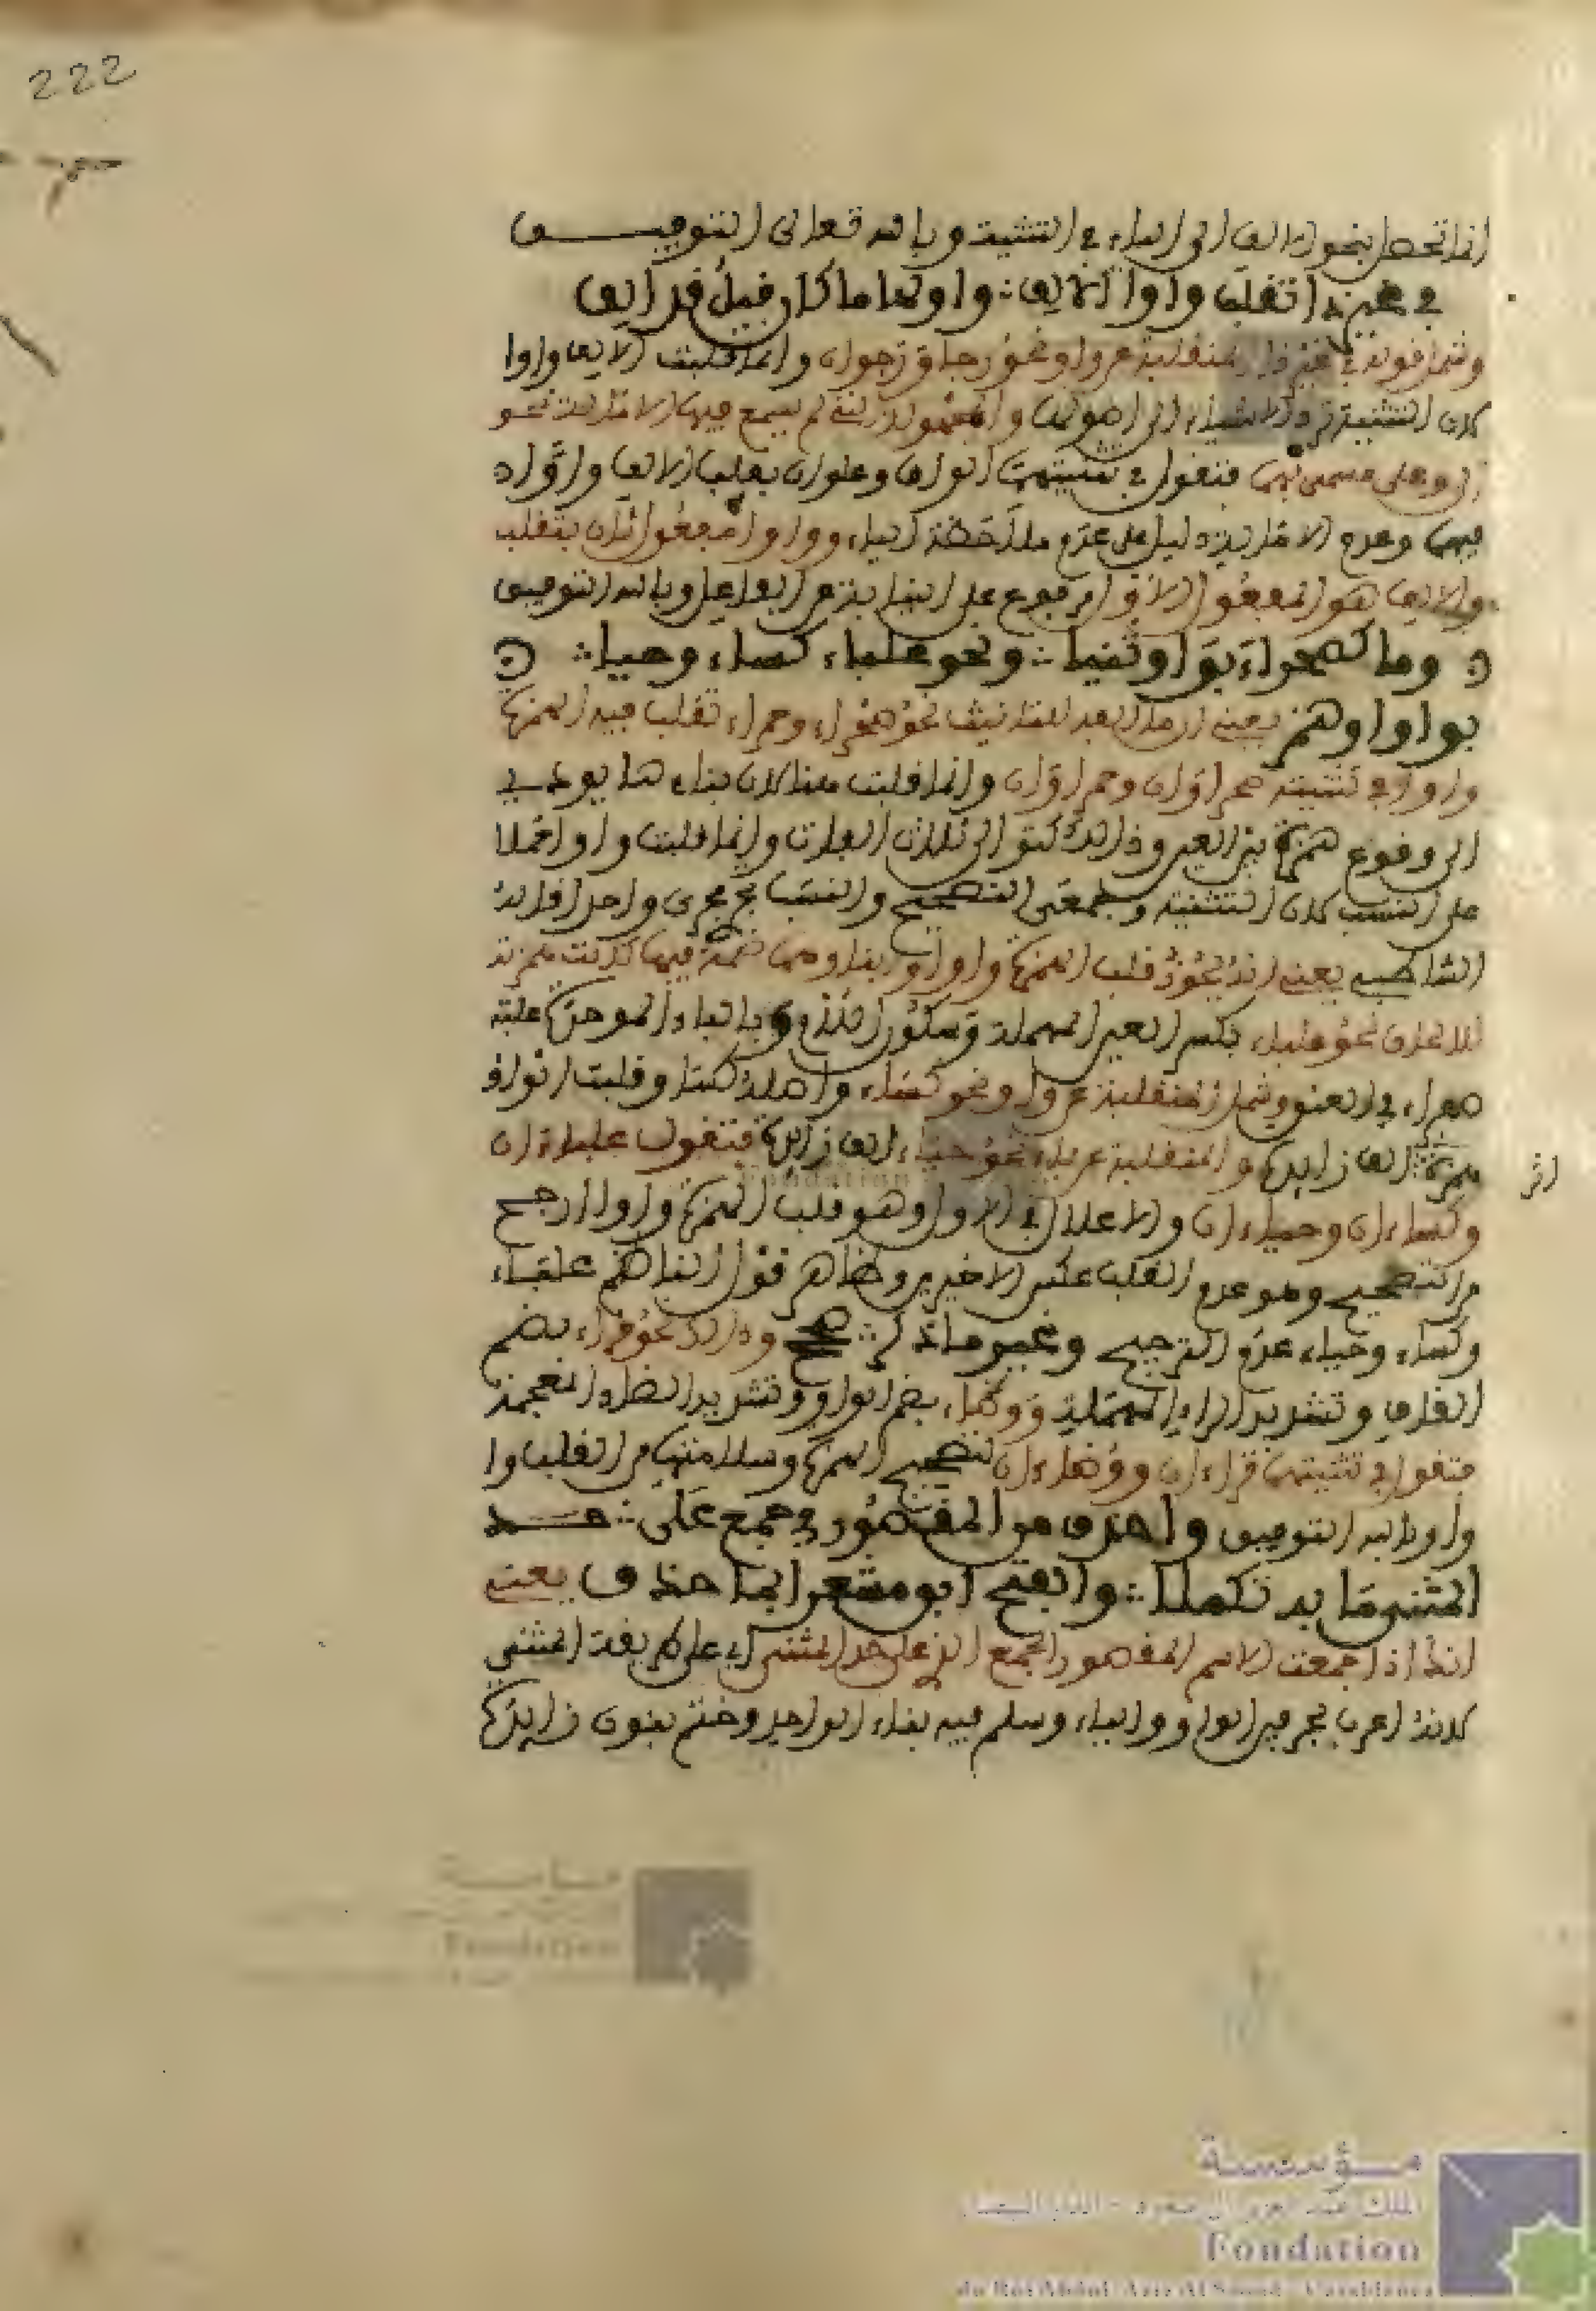 222
انما تحصل بنحو الالف الى الياء في التثنية وبالله تعالى التوفيق
في غير ذا تقلب واوا الالف ∴ واولها ما كان قبل قد الف
وشمل قوله في غير ذا المنقلبة عن واو نحو رجا ورجوان وانما قلبت الالف واوا
لان التثنية ترد الاشياء الى اصولها والمجهولة التي لم يسمع فيها الامالة نحو
الى وعلى مسمى بهما فتقول في تثنيتهما الوان وعلوان بقلب الالف واوا
فيهما وعدم الامالة دليل على عدم ملاحظة الياء وواوا مفعول ثان بتقلب
والالف هو المفعول الاول مرفوع على النيابة عن الفاعل وبالله التوفيق
وما كصحراء بواو ثنيا ∴ ونحو علباء كساء وحيا ∴
بواو او همز يعني ان ما الفه للتانيث نحو صحراء وحمراء تقلب فيه الهمزة
واوا في تثنيته صحراوان وحمراوان وانما قلبت هنا لان بقاءها يودي
الى وقوع همزة بين الفين وذلك كتوالي ثلاث الفات وانما قلبت واوا حملا
على النسب لان التثنية وجمعي التصحيح والنسب تجري مجرى واحدا قاله
الشاطبي يعني انه يجوز قلب الهمزة واوا وابقاوها همزة فيما كانت همزته
للالحاق نحو علباء بكسر العين المهملة وسكون اللام وبالباء الموحدة علبة
صفراء في العنق وشمل المنقلبة عن واو نحو كساء واصله كساو قلبت الواو
همزة الف زايدة والمنقلبة عن ياء نحو حياء الف زايدة فتقول علباءان
اثر
وكساءان وحياءان والاعلال في الاول وهو قلب الهمزة واوا ارجح
من التصحيح وهو عدم القلب عكس الاخيرين وظاهر قول الناظم علباء
وكساء وحياء عدم الترجيح وغير ما ذكر ∴ صحح وذلك نحو قراء بضم
القاف وتشديد الراء المهملة ووضاء بضم الواو وتشديد الضاد المعجمة
فتقول في تثنيتهما قراءان ووضاءان لتصحيح الهمزة وسلامتها من القلب وا
واوا وبالله التوفيق واحذف من المقصور في جمع على ∴ حد
المثنى ما به تكملا ∴ والفتح ابق مشعرا بما حذف يعني
انك اذا جمعت الاسم المقصور الجمع الذي على حد المثنى اي على طريقة المثنى
لانه اعرب بحرفين الواو والياء وسلم فيه بناء الواحد وختم بنون زايدة
مؤسسة
الملك عبد العزيز ال سعود - الدار البيضاء
Fondation
du Roi Abdul-Aziz Al Saoud - Casablanca